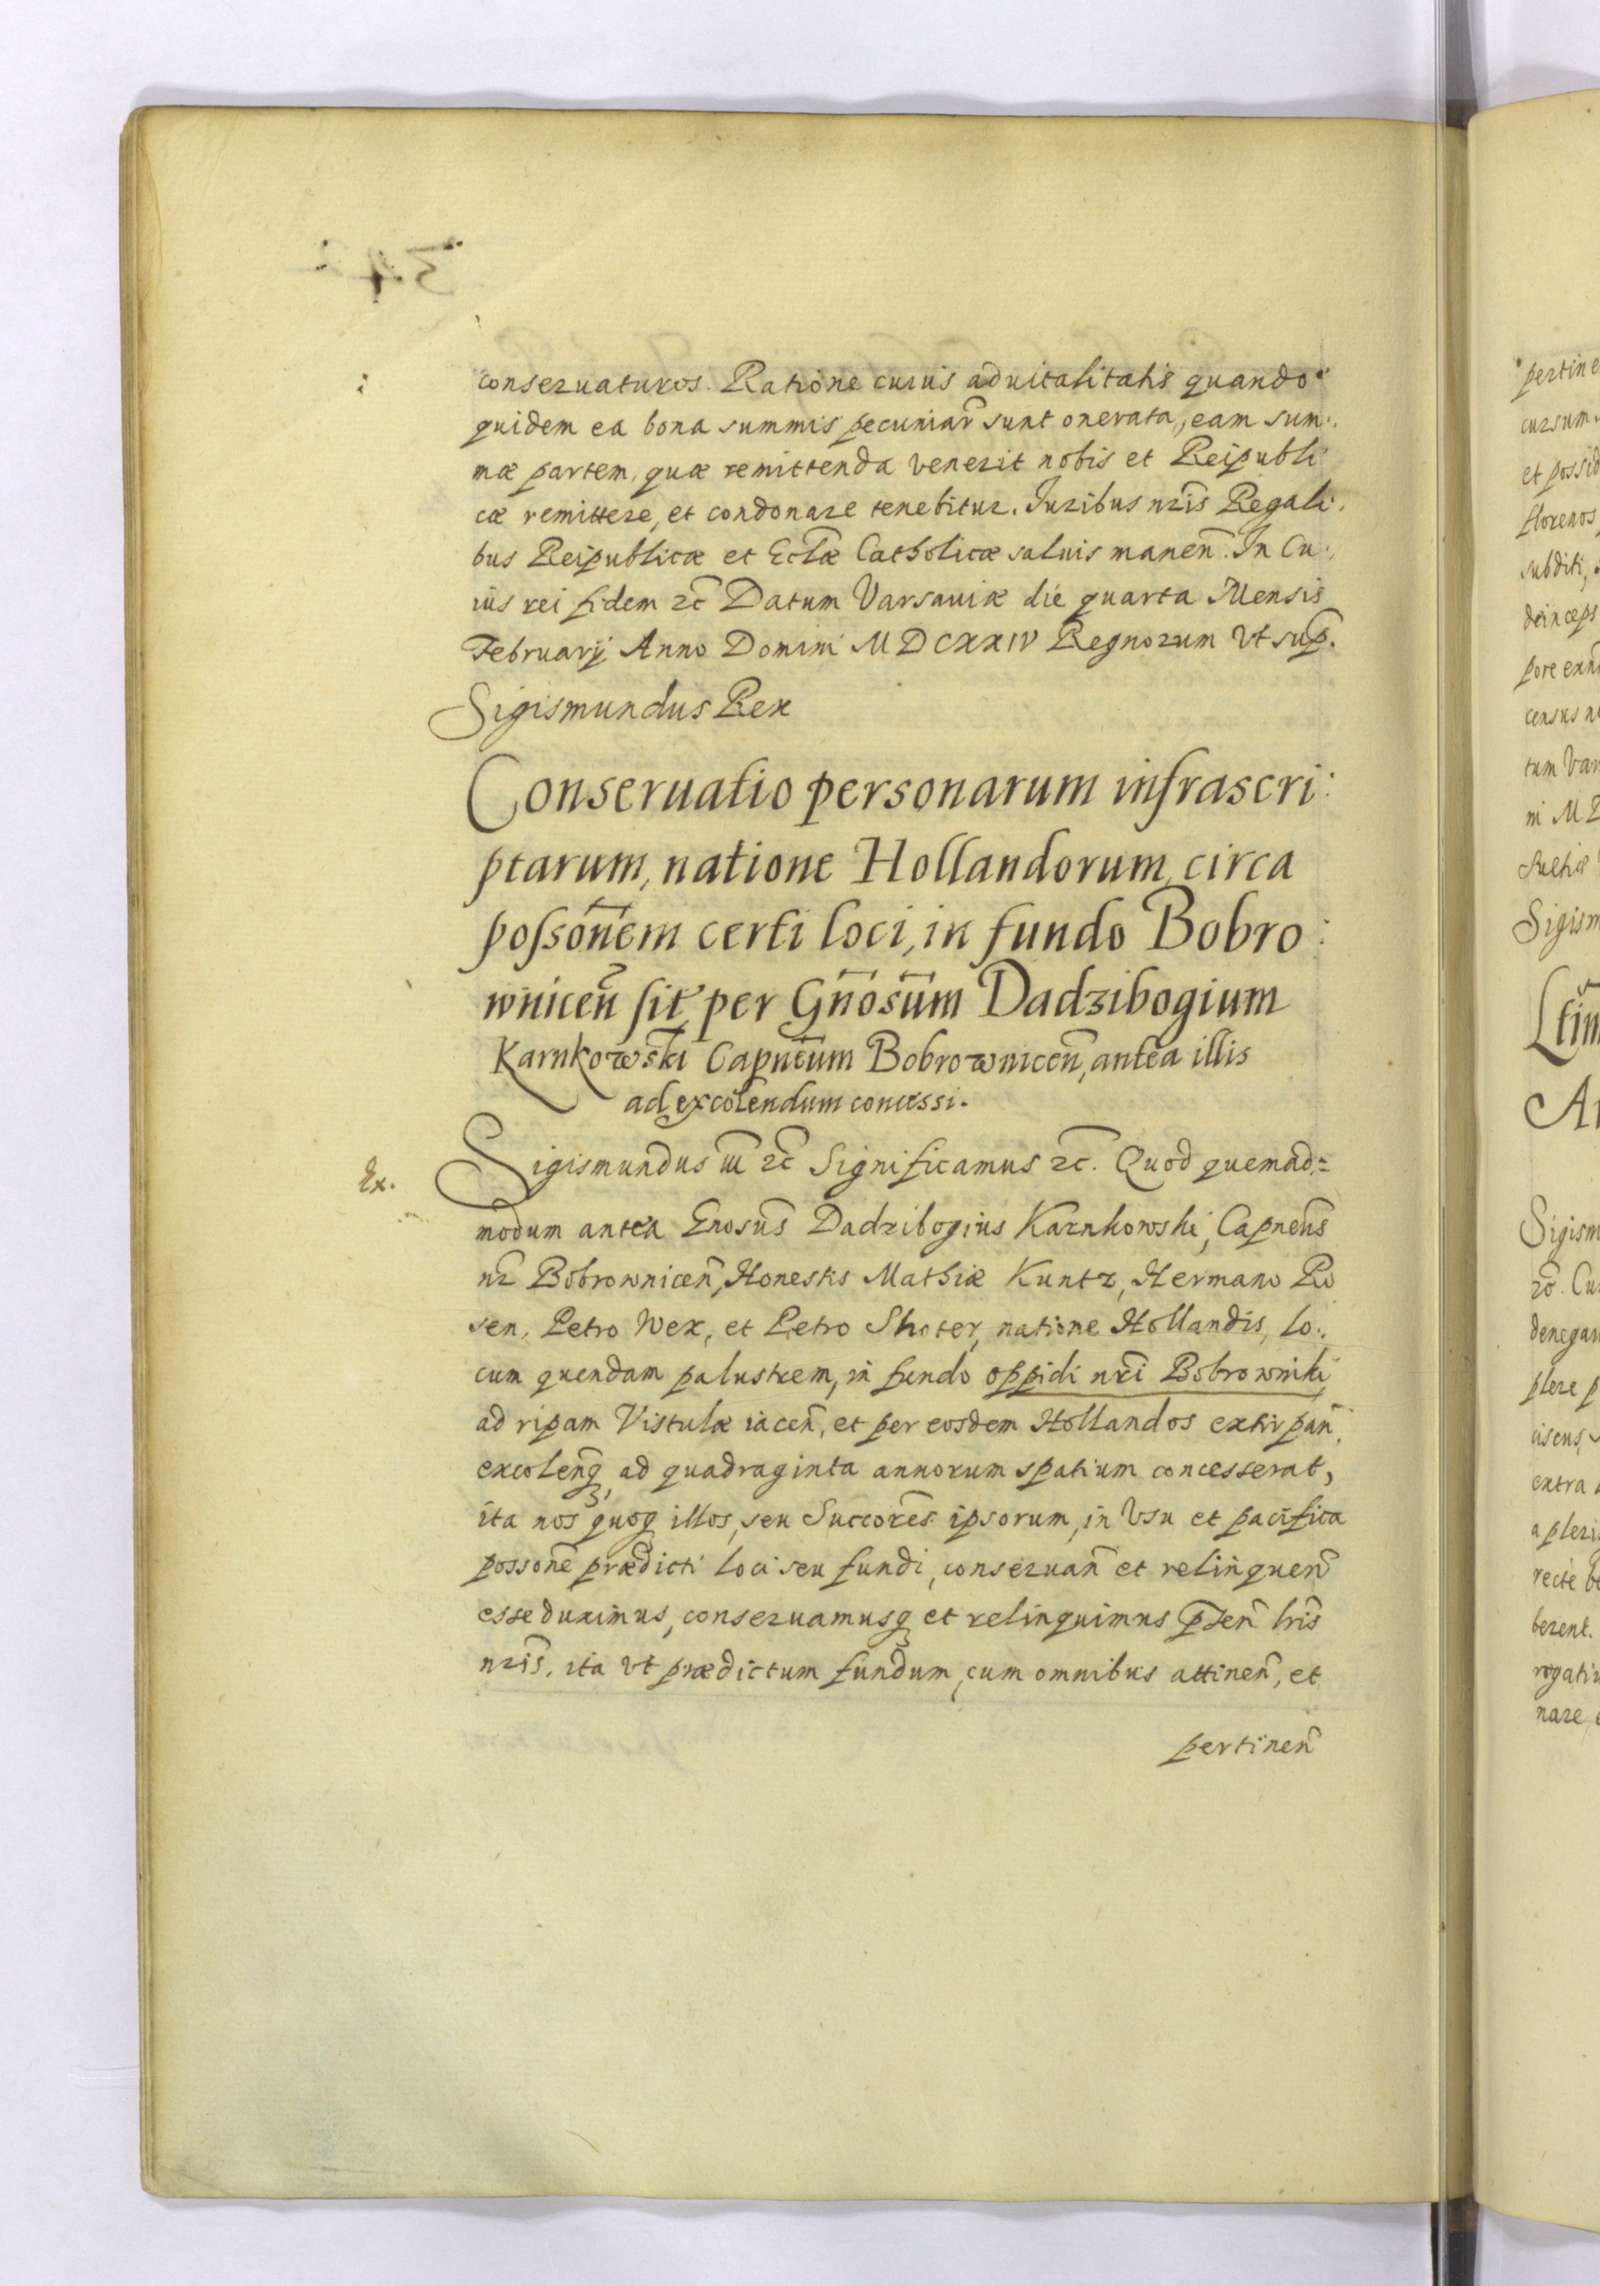 conseruaturos. Ratione cuius aduitalitatis quando
quidem ea bona summis pecuniar̃ sunt onerata, eam sum:
mæ partem, quæ remittenda venerit nobis et Reipubli
cæ remittere, et condonare tenebitur. Iuribus nr̃is Regali:
bus Reipublicæ et Eccl̃æ Catholicæ saluis maneñ. In Cu:
ius rei fidem etc̃ Datum Varsauiæ die quarta Mensis
Februarij Anno Domini MDCXXIV Regnorum vt sup̃.
Sigismundus Rex
Conseruatio personarum infrascri:
ptarum, natione Hollandorum, circa
poſsoñem certi loci, in fundo Bobro:
wniceñ sit̃ per Gñosũm Dadzibogium
Karnkowski Capñeũm Bobrowniceñ, antea illis
ad excolendum concessi.
Ex.
Sigismundus III etc̃ Significamus etc̃. Quod quemad=
modum antea Gñosũs Dadzibogius Karnkowski, Capñeũs
nr̃ Bobrowniceñ, Honestis Mathiæ Kuntz, Hermano Ro
sen, Petro Wex, et Petro Shoter, natione Hollandis, lo:
cum quendam palustrem, in fundo oppidi nr̃i Bobrowniki
ad ripam Vistulæ iaceñ, et per eosdem Hollandos extirpañ,
excoleñq3, ad quadraginta annorum spatium concesserat,
ita nos quoq3 illos, seu Succores̃ ipsorum, in Vsu et pacifica
possoñe prædicti loci seu fundi, conseruañ et relinqueñ
esse duximus, conseruamusq3 et relinquimus p̃nteñ lr̃is
nr̃is. ita vt prædictum fundum, cum omnibus attineñ, et
pertineñ